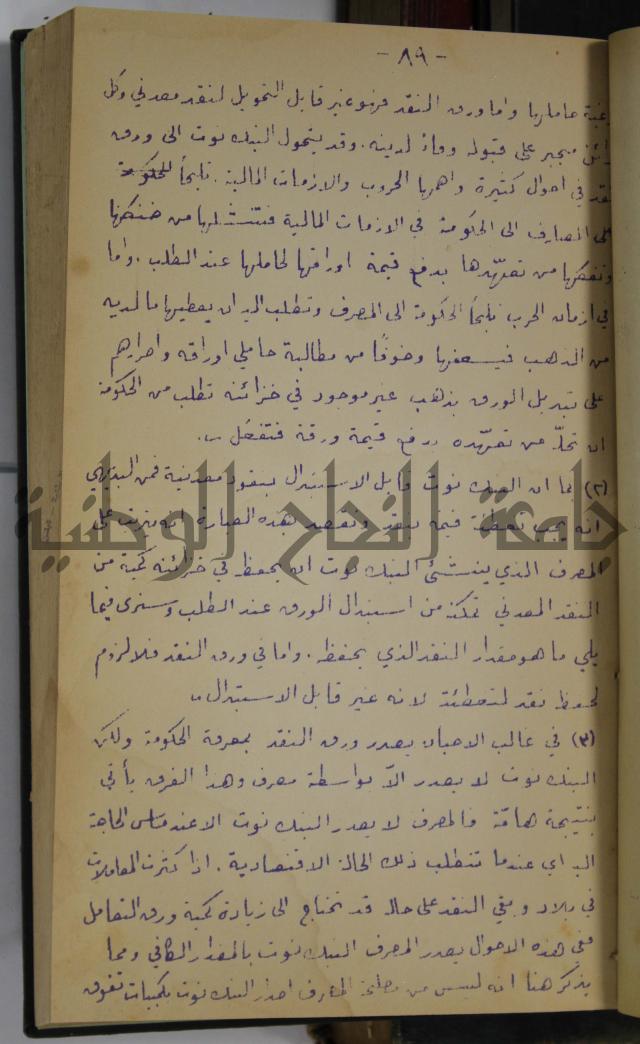 - ٨٩ -
رغبة حاملها واما ورق النقد فهو غير قابل التحويل لنقد معدني وكل
دائن مجبر على قبوله وفاءً لدينه. وقد يتحول البنك نوت الى ورق
نقد في احوال كثيرة واهمها الحروب والازمات المالية. تلجأ الحكومة
على المصارف الى الحكومة في الازمات المالية فتنتشلها من ضنكها
وتفكها من تعهّدها بدفع قيمة اوراقها لحاملها عند الطلب. واما
في ازمان الحرب تلجأ الحكومة الى المصرف وتطلب اليه ان يعطيها ما لديه
من الذهب فيسعفها وخوفًا من مطالبة حاملي اوراقه واحراجهم
على تبديل الورق بذهب غير موجود في خزائنه تطلب من الحكومة
ان تحلّه من تعهّده بدفع قيمة ورقه فتفعل ..
(٢) بما ان البنك نوت قابل الاستبدال بنقود معدنية فمن البديهي
انه يجب تغطية قيمته بنقد ونقصد بهذه العبارة انه يترتب على
المصرف الذي ينشئ البنك نوت ان يحفظ في خزائنه كمية من
النقد المعدني تمكنه من استبدال الورق عند الطلب وسنرى فيما
يلي ما هو مقدار النقد الذي يحفظه. واما في ورق النقد فلا لزوم
لحفظ نقد لتغطيته لانه غير قابل الاستبدال ..
(٣) في غالب الاحيان يصدر ورق النقد بمعرفة الحكومة ولكن
البنك نوت لا يصدر الاّ بواسطة مصرف وهذا الفرق يأتي
بنتيجة هامّة فالمصرف لا يصدر البنك نوت الا عند مساس الحاجة
اليه اي عندما تتطلب ذلك الحالة الاقتصادية. اذا كثرت المعاملات
في بلاد وبقي النقد على حاله قد تحتاج الى زيادة كمية ورق التعامل
ففي هذه الاحوال يصدر المصرف البنك نوت بالمقدار الكافي ومما
يذكر هنا انه ليس من مصلحة المصارف اصدار البنك نوت بكميات تفوق
جامعة النجاح الوطنية